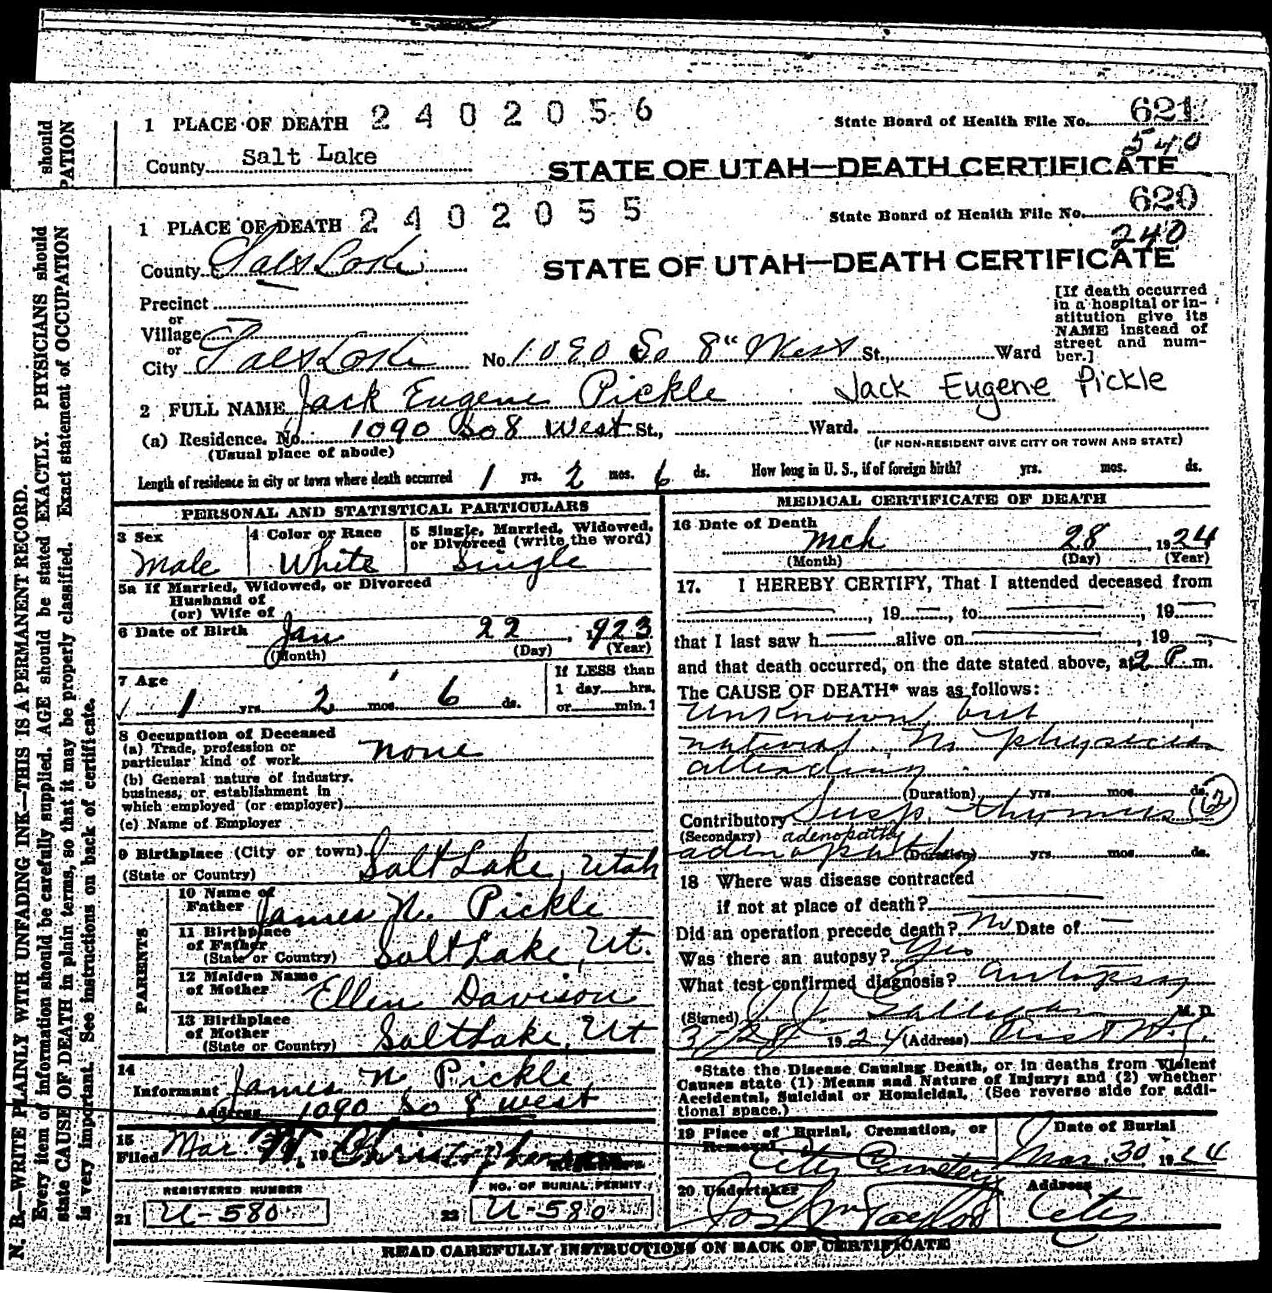 should
PATION
1 PLACE OF DEATH 2402056
State Board of Health File No. 621
540
County Salt Lake
STATE OF UTAH—DEATH CERTIFICATE
1 PLACE OF DEATH 2402055
State Board of Health File No. 620
240
County Salt Lake
STATE OF UTAH—DEATH CERTIFICATE
Precinct
or
Village
or
City Salt Lake No. 1090 So 8" West St., Ward
[If death occurred
in a hospital or in-
stitution give its
NAME instead of
street and num-
ber.]
2 FULL NAME Jack Eugene Pickle Jack Eugene Pickle
(a) Residence. No. 1090 So 8 West St., Ward.
(Usual place of abode) (IF NON-RESIDENT GIVE CITY OR TOWN AND STATE)
Length of residence in city or town where death occurred 1 yrs. 2 mos. 6 ds. How long in U. S., if of foreign birth? yrs. mos. ds.
PERSONAL AND STATISTICAL PARTICULARS
3 Sex
Male
4 Color or Race
White
5 Single, Married, Widowed,
or Divorced (write the word)
Single
5a If Married, Widowed, or Divorced
Husband of
(or) Wife of
6 Date of Birth Jan 22, 1923
(Month) (Day) (Year)
7 Age
1 yrs. 2 mos. 6 ds.
If LESS than
1 day hrs.
or min.
8 Occupation of Deceased
(a) Trade, profession or
particular kind of work none
(b) General nature of industry,
business, or establishment in
which employed (or employer)
(c) Name of Employer
9 Birthplace (City or town) Salt Lake, Utah
(State or Country)
PARENTS
10 Name of
Father James N. Pickle
11 Birthplace
of Father
(State or Country) Salt Lake, Ut.
12 Maiden Name
of Mother Ellen Davison
13 Birthplace
of Mother
(State or Country) Salt Lake, Ut
14
Informant James N. Pickle
Address 1090 So 8 West
15
Filed Mar 19 Christopherson
Registrar
REGISTERED NUMBER
21 U-580
NO. OF BURIAL PERMIT
22 U-580
MEDICAL CERTIFICATE OF DEATH
16 Date of Death
Mch 28, 1924
(Month) (Day) (Year)
17. I HEREBY CERTIFY, That I attended deceased from
, 19 , to , 19
that I last saw h alive on , 19 ,
and that death occurred, on the date stated above, at 2 P. m.
The CAUSE OF DEATH* was as follows:
Unknown, but
natural. No physician
attending.
(Duration) yrs. mos. ds.
Contributory Susp. thymus (2)
(Secondary) adenopathy
(Duration) yrs. mos. ds.
18 Where was disease contracted
if not at place of death?
Did an operation precede death? No Date of —
Was there an autopsy? Yes
What test confirmed diagnosis? Autopsy
(Signed) M. D.
3/28 1924 (Address)
*State the Disease Causing Death, or in deaths from Violent
Causes state (1) Means and Nature of Injury; and (2) whether
Accidental, Suicidal or Homicidal. (See reverse side for addi-
tional space.)
19 Place of Burial, Cremation, or
Removal
City Cemetery
Date of Burial
Mar 30 1924
20 Undertaker
Jos Wm Taylor
Address
City
READ CAREFULLY INSTRUCTIONS ON BACK OF CERTIFICATE
N. B.—WRITE PLAINLY WITH UNFADING INK—THIS IS A PERMANENT RECORD.
Every item of information should be carefully supplied. AGE should be stated EXACTLY. PHYSICIANS should
state CAUSE OF DEATH in plain terms, so that it may be properly classified. Exact statement of OCCUPATION
is very important. See instructions on back of certificate.